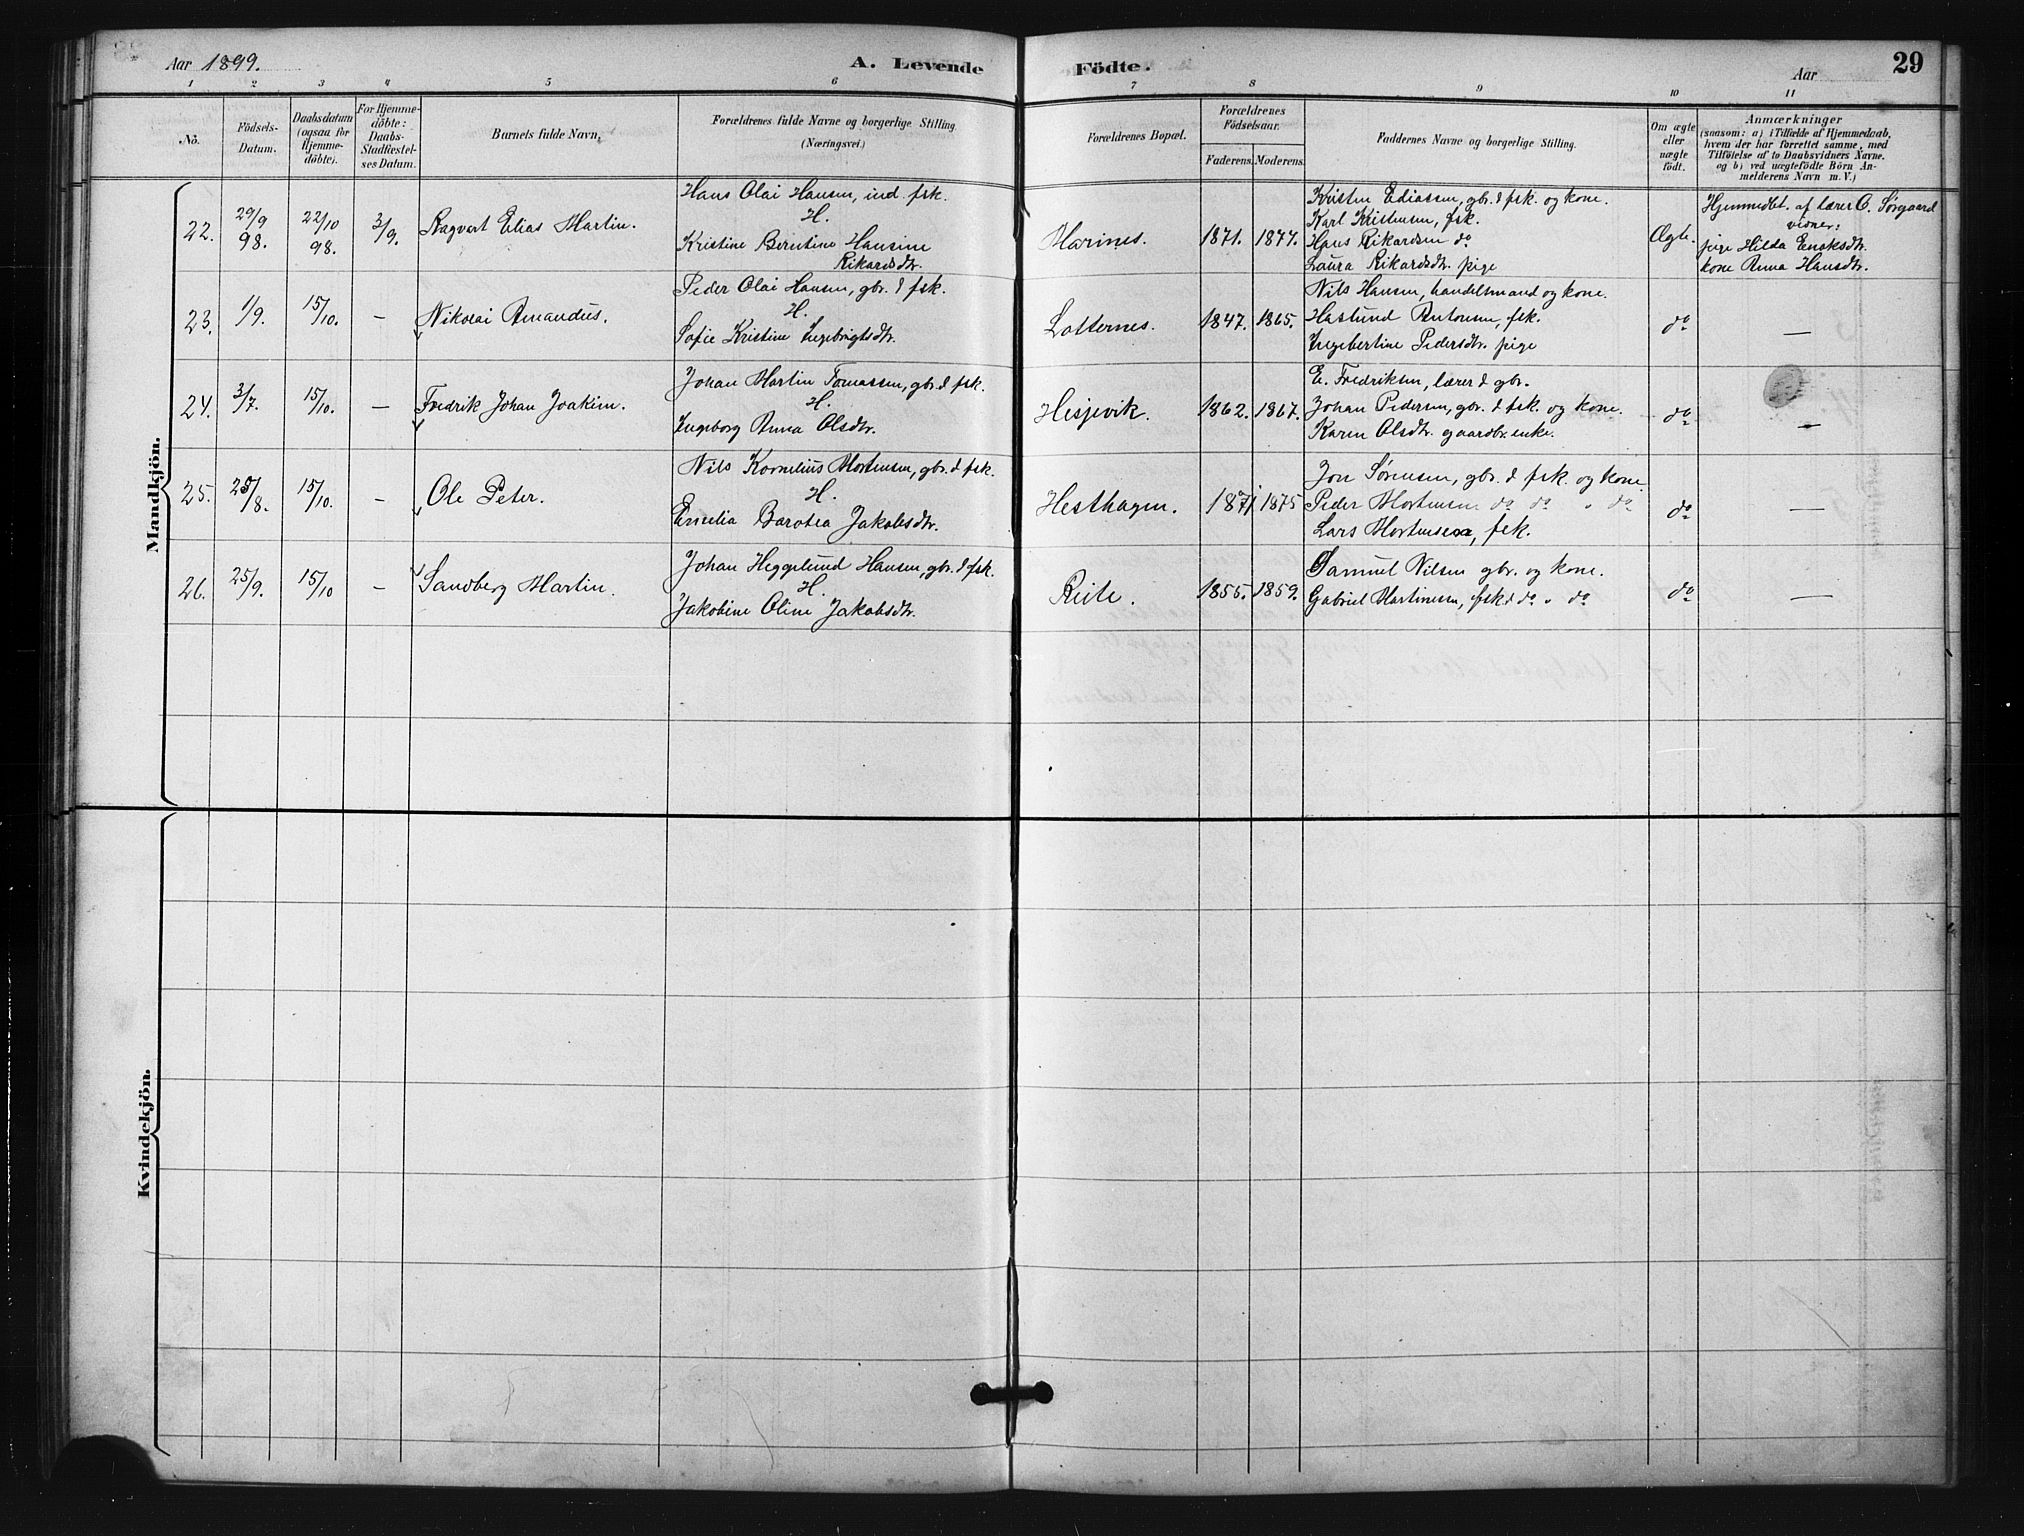 Aar 1899.
A. Levende Födte.
Aar
29
1 2 3 4 5 6 7 8 9 10 11
No.
Födsels-Datum.
Daabsdatum (ogsaa for Hjemme-döbte).
For Hjemme-döbte: Daabs-Stadfæstel-ses Datum.
Barnets fulde Navn.
Forældrenes fulde Navne og borgerlige Stilling (Næringsvei.)
Forældrenes Bopæl.
Forældrenes Födselsaar.
Faderens. Moderens.
Faddernes Navne og borgerlige Stilling.
Om ægte eller uægte födt.
Anmærkninger
(saasom: a) i Tilfælde af Hjemmedaab,
hvem der har forrettet samme, med
Tilföielse af to Daabsvidners Navne.
og b) ved uægtefödte Börn An-
melderens Navn m. V.)
Mandkjön.
22. 29/9 98. 22/10 98. 3/9. Ragvart Elias Martin.
Hans Olai Hansen, ind. fsk.
H.
Kristine Berntine Hansine
Rikardsdtr.
Marines. 1871. 1877.
Kristen Ediassen, gbr. & fsk. og kone.
Karl Kristensen, fsk.
Hans Rikardsen do
Laura Rikardsdtr. pige
Ægte.
Hjemmedbt. af lærer O. Sørgaard
vidner:
pige Hilda Enoksdtr.
kone Anna Hansdtr.
23. 1/9. 15/10. — Nikolai Amandus.
Peder Olai Hansen, gbr. & fsk.
H.
Sofie Kristine Ingebrigtsdtr.
Lotternes. 1847. 1865.
Nils Hansen, handelsmand og kone.
Haslund Antonsen, fsk.
Ingebertine Pedersdtr. pige
do —
24. 3/7. 15/10. — Fredrik Johan Joakim.
Johan Martin Tomassen, gbr. & fsk.
H.
Ingeborg Anna Olsdtr.
Hesjevik. 1862. 1867.
E. Fredriksen, lærer & gbr.
Johan Pedersen, gbr. & fsk. og kone.
Karen Olsdtr. gaardbr. enke.
do —
25. 25/8. 15/10. — Ole Peter.
Nils Kornelius Mortensen, gbr. & fsk.
H.
Emelia Barotea Jakobsdtr.
Hesthagen. 1871 1875
Jon Sørensen, gbr. & fsk. og kone.
Peder Mortensen do do " do
Lars Mortensen, fsk.
do —
26. 25/9. 15/10 — Sandberg Martin.
Johan Heggelund Hansen, gbr. & fsk.
H.
Jakobine Oline Jakobsdtr.
Reite. 1855. 1859.
Samuel Nilsen gbr. og kone.
Gabriel Martinesen, fsk & do " do
do —
Kvindekjön.